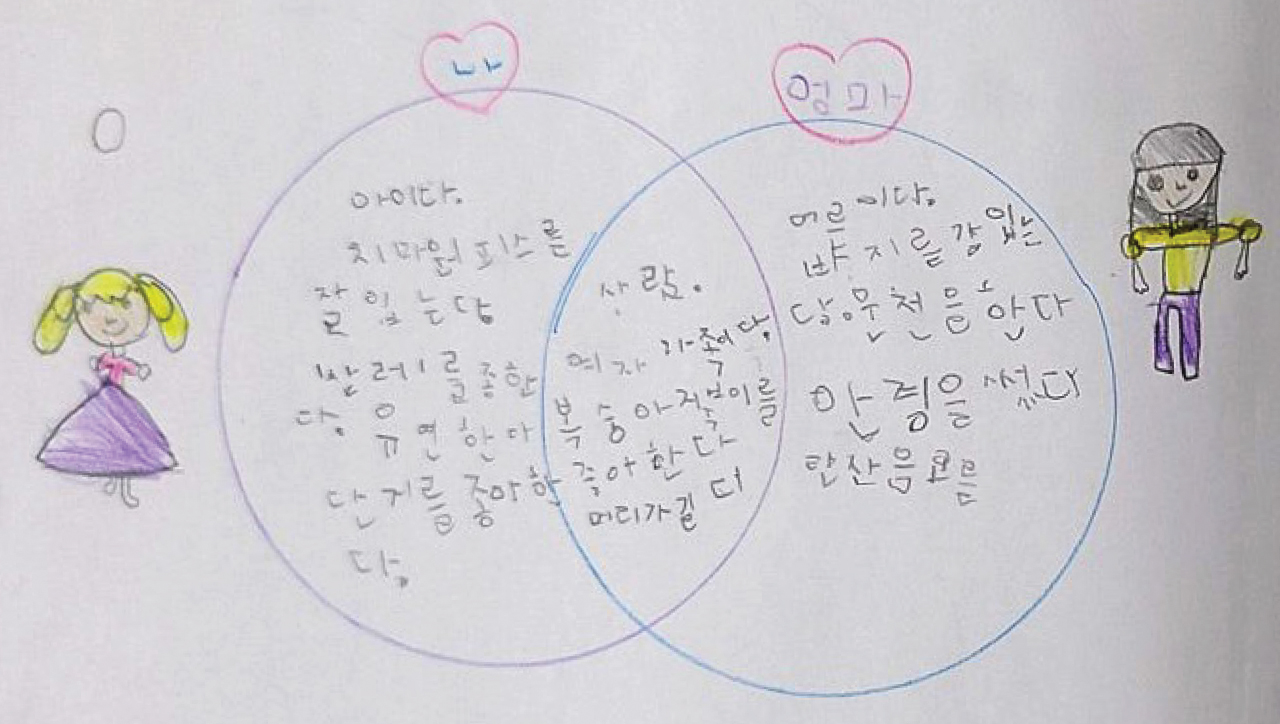 나
엄마
아이다.
치마원피스를
잘 입는다
발레를 좋한
다. 유연한다
단지를 좋아한
다.
사람.
여자 가족이다.
복숭아 젹복이를
좋아한다
머리가길다
어른이다.
바지를 잠입는
다 운천을 한다
안경을 썼다
탄산음료를